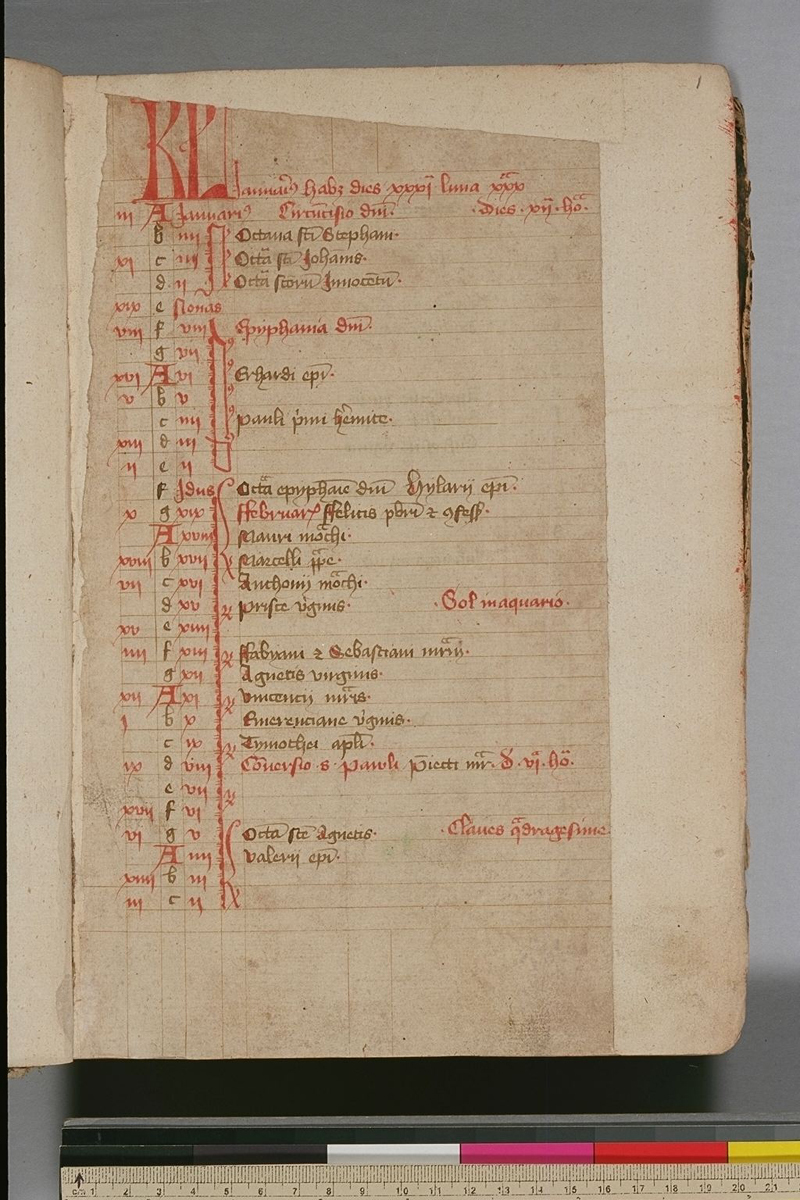 1
KL
Januari9 habz dies xxxi luna xxx
iii A Januari9 Circu̅cisio dni̅. dies . xvi . ho̅.
b iiii Octaua sci̅ Stephani.
xi c iii Octa̅ sci̅ Joha̅nis.
d ii Octa̅ sco̅ru̅ Innoce̅tu̅.
xix e Nonas
viii f viii Epyphania dni̅.
g vii
xvi A vi Erhardi epi̅.
v b v
c iiii Pauli p̅mi he̅mite.
xiii d iii
ii e ii
f Idus Octa̅ epyph̅aie dni̅ Hylarii epi̅.
x g xix ffebruar ffelicis pbri̅ ⁊ ꝯfess̅.
A xviii Mauri mo̅chi.
xviii b xvii Marcelli pp̅e.
vii c xvi Anthonij mo̅chi.
d xv Prisce v̅ginis. . Sol in aquario.
xv e xiiii
iiii f xiii ffabyani ⁊ Sebastiani mr̅m̅.
g xii Agnetis virginis.
xii A xi Vincencii mr̅is.
j b x Emerenciane v̅ginis.
c ix Tymothei apl̅i.
ix d viii Co̅uersio . s . Pauli p̅iecti mr̅. d. vi. ho̅.
e vii
xvii f vi
vi g v Octa̅ sce̅ Agnetis. . Claues q̅dragesime
A iiii Valerii epi̅.
xiiii b iii
iii c ii
cm 1 2 3 4 5 6 7 8 9 10 11 12 13 14 15 16 17 18 19 20 21